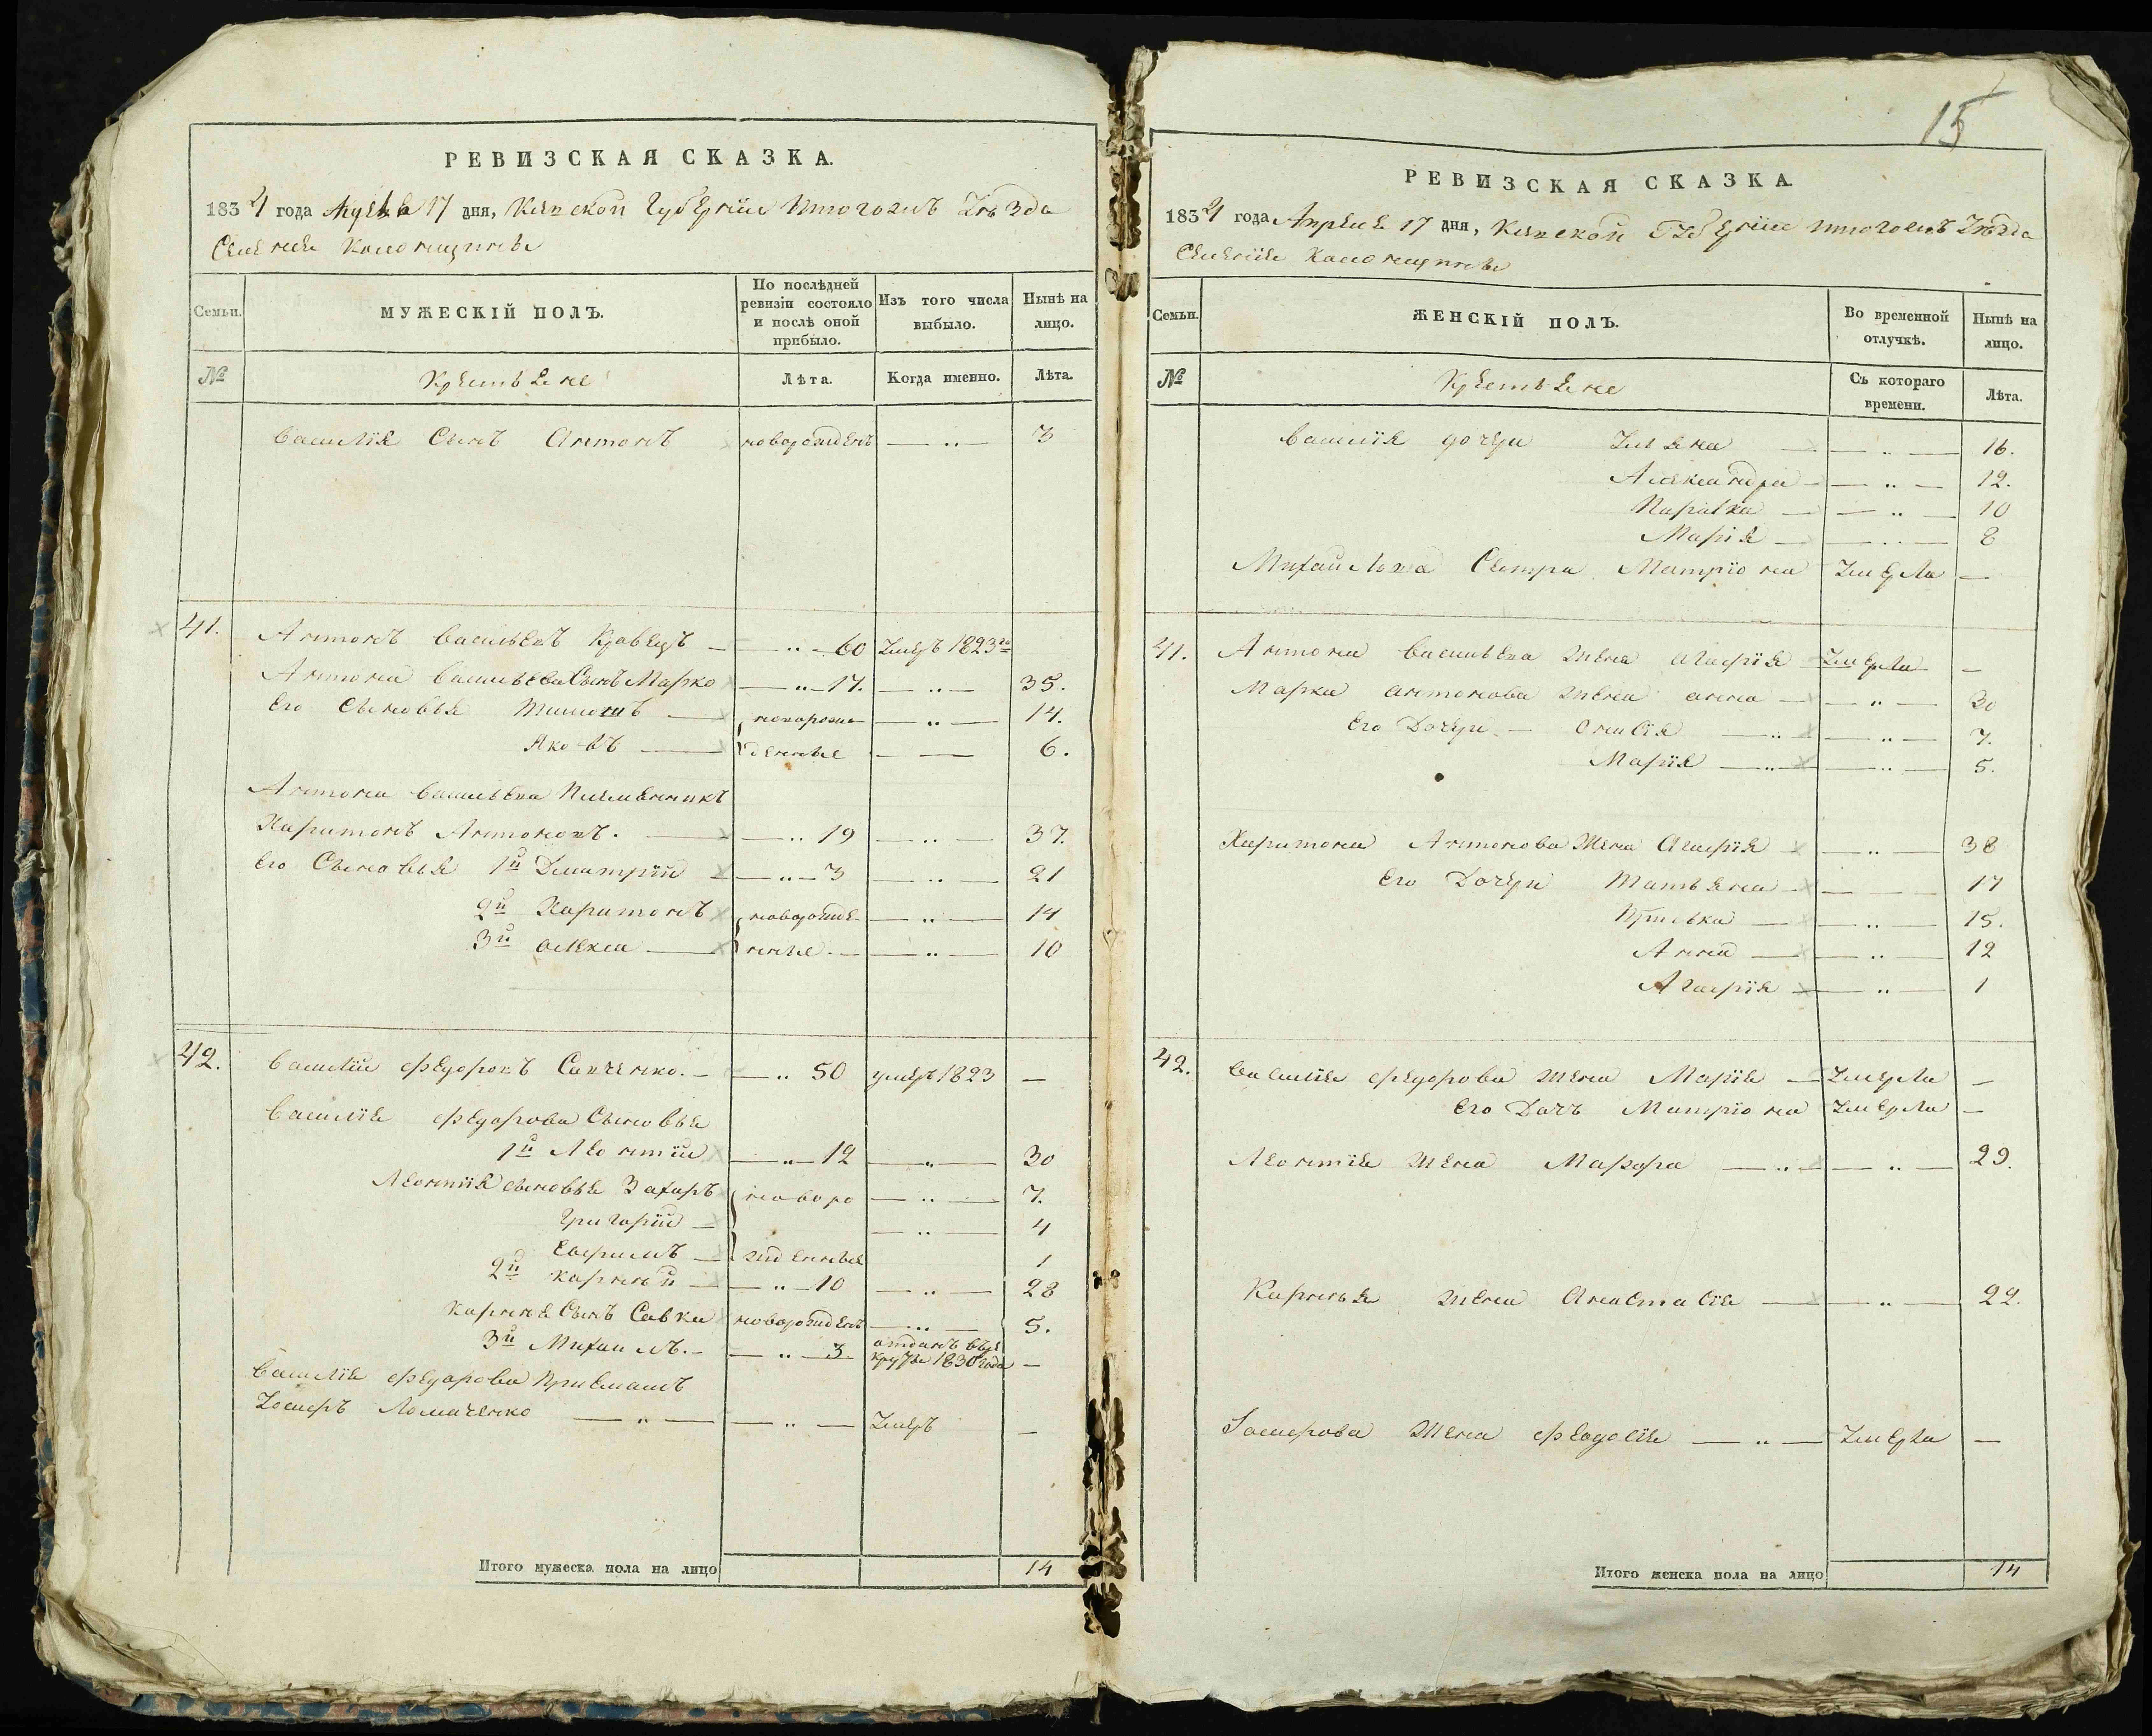 15
РЕВИЗСКАЯ СКАЗКА.
1834 года Апреля 17 дня, Кіевской Губерніи того жъ Уѣзда
Селенія
Семьи.
МУЖЕСКІЙ ПОЛЪ.
По послѣдней ревизіи состояло и послѣ оной прибыло.
Изъ того числа выбыло.
Нынѣ на лицо.
№
Крестьяне
Лѣта.
Когда именно.
Лѣта.
Василія Сынъ Антонъ новорожденъ — „ — 3
41. Антонъ Васильевъ Кравецъ — „ — 60 Умеръ 1823го
Антона Васильева Сынъ Марко — „ — 17. — „ — 35.
Его Сыновья Тимошъ — новорож — „ — 14.
Яковъ — денные — — 6.
Антона Васильева Племенникъ
Харитонъ Антоновъ. — — „ 19 — „ — 37.
Его Сыновья 1й Дмитрій — „ — 3 — „ — 21
2й Харитонъ новорожде — „ — 14
3й Олекса — нные. — — „ — 10
42. Василій Федоровъ Савченко. — — „ 50 умеръ 1823 —
Василія Федорова Сыновья
1й Леонтій — „ — 12 — „ — 30
Леонтія сыновья Захаръ новоро — „ — 7.
Григорій — — „ — 4
Ефримъ — жденные 1
2й Карпній — — „ — 10 — „ — 28
Сынъ Савка новорожденъ — „ — 5.
3й Михаилъ. — — „ — 3. отданъ въ ре
круты 1830 года —
Василія Федорова Приемашъ
Ломаченко — „ — — „ — Умеръ —
Итого мужеска пола на лицо 14
РЕВИЗСКАЯ СКАЗКА
1834 года Апреля 17 дня, Кіевской Губерніи того жъ Уѣзда
Селенія
Семьи.
ЖЕНСКІЙ ПОЛЪ.
Во временной отлучкѣ.
Нынѣ на лицо.
№
Крестьяне
Съ котораго времени.
Лѣта.
Василія дочери Ульяна — — „ — 16.
Александра — — „ — 12.
Парасka — — „ — 10
Марія — — „ — 8
Михайлова Сестра Матріона Умерла —
41. Антона Васильева Жена Агафія Умерла —
Марка Антонова Жена Анна — — „ — 30
Его Дочери — Онисія — „ — — „ — 7.
Марія — „ — — „ — 5.
Харитона Антонова Жена Агафія — „ — 38
Его Дочери Татьяна — — — 17
— — „ — 15.
Анна — — „ — 12
Агафія — — „ — 1
42. Василія Федорова Жена Марія — Умерла —
Его Дочъ Матріона Умерла —
Леонтія Жена Марфа — „ — — „ — 29.
Жена Анастасія — — „ — 22.
Жена Феодосія — „ — Умерла —
Итого женска пола на лицо 14